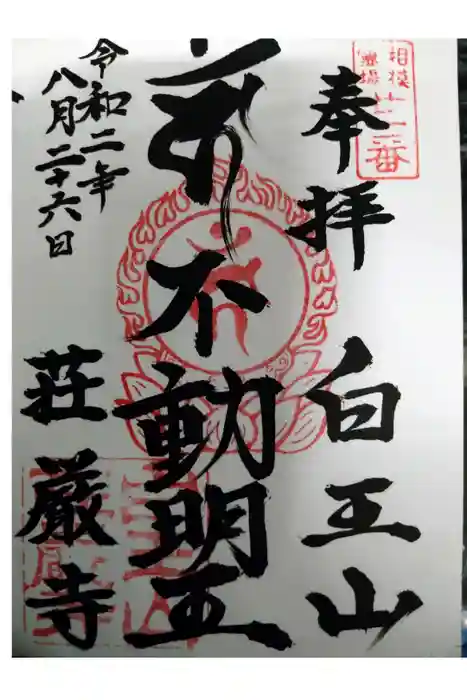 相模
霊場
奉拝
白王山
不動明王
令和二年
八月二十六日
荘厳寺